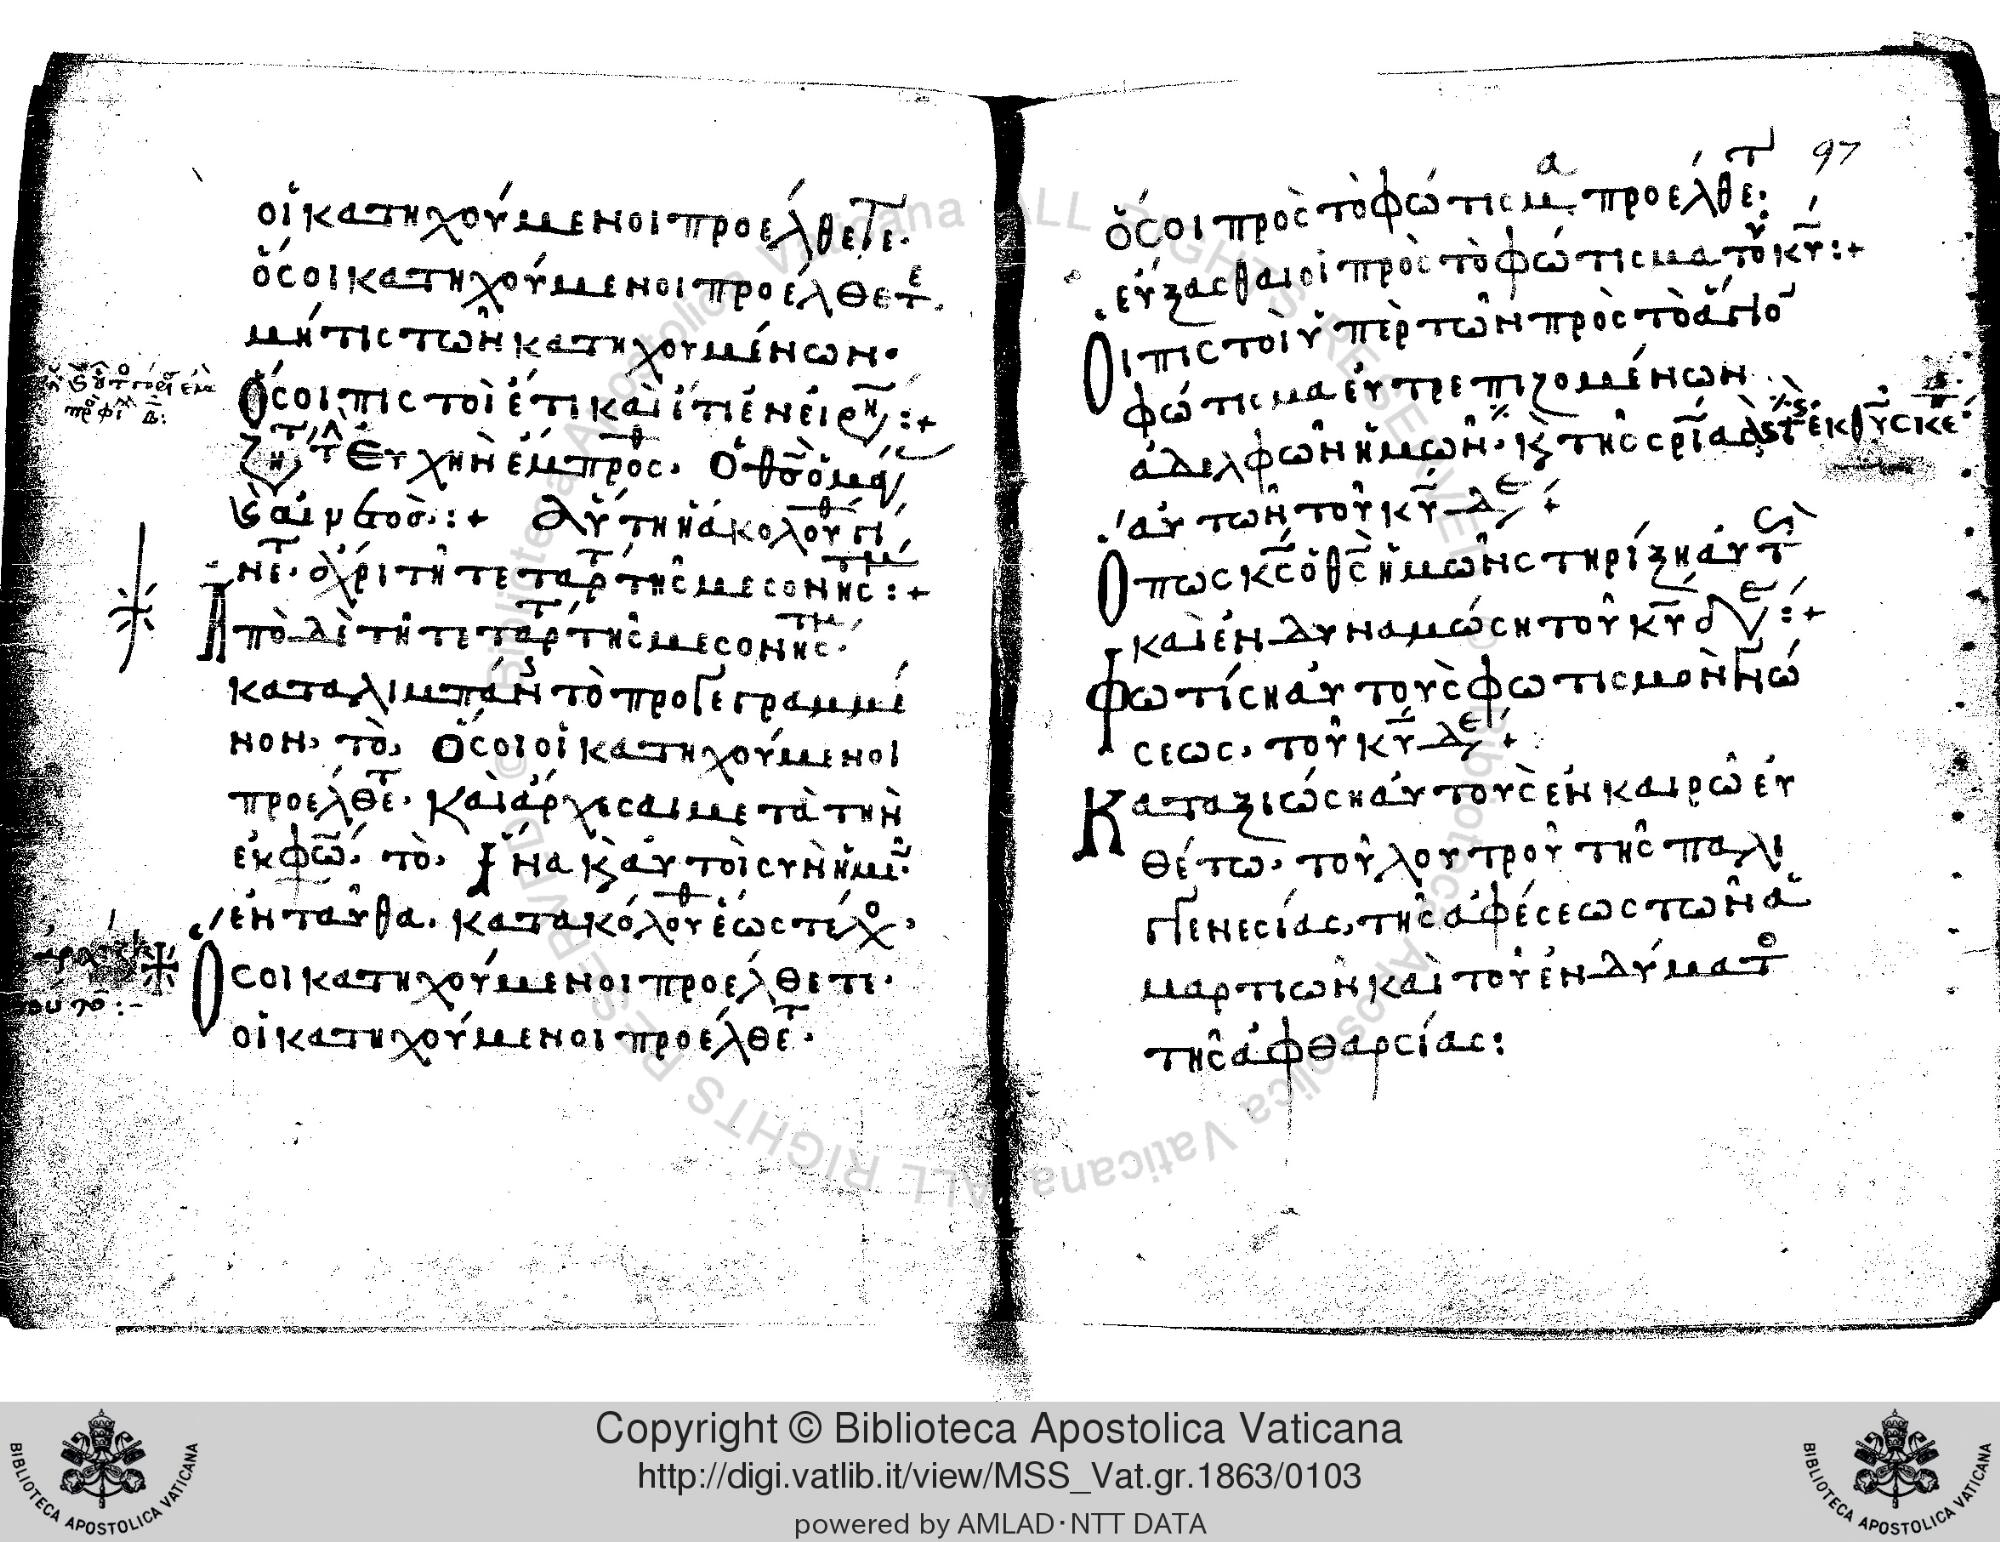 οἱ κατηχούμενοι προέλθετε·
ὅσοι κατηχούμενοι προέλθετε·
μή τις τῶν κατηχουμένων·
Ὅσοι πιστοὶ ἔτι καὶ ἔτι ἐν εἰρην :+
εὐχὴν ἔμπροσθ·
:+ Αὕτη ἡ ἀκολουθί
τῆς μεσονης :+
Ἀπὸ δὲ τῆ τετάρτ τῆς μεσονης·
καταλιμπάν τὸ προγεγραμμέ
νον· τὸ· Ὅσοι οἱ κατηχούμενοι
προέλθετ· Καὶ ἄρχισαι μετὰ τὴν
ἐκφω· τὸ· Ἵνα κ αὐτοὶ σὺν ἡμ·
ἐνταῦθα· κατακόλουθ ἕως τέλο·
Ὅσοι κατηχούμενοι προέλθετε·
οἱ κατηχούμενοι προέλθετ·
97
ὅσοι πρὸς τὸ φώτισμα προέλθετ·
εὔξασθαι οἱ πρὸς τὸ φώτισμα τοῦ κυ :+
Οἱ πιστοὶ ὑπὲρ τῶν πρὸς τὸ ἅγιο
φώτισμα εὐτρεπιζομένων
ἀδελφῶν ἡμῶν· κ τῆς σρίας
αὐτῶν τοῦ κυ δε+
Ὅπως κς ὁ θς ἡμῶν στηρίξη αὐτ
καὶ ἐνδυναμώση τοῦ κυ δε :+
Φωτίση αὐτοὺς φωτισμὸν γνώ
σεως· τοῦ κυ δε+
Καταξιώση αὐτοὺς ἐν καιρῶ εὐ
θέτω· τοῦ λουτροῦ τῆς παλι
γγενεσίας, τῆς ἀφέσεως τῶν ἁ
μαρτιῶν καὶ τοῦ ἐνδύματο
τῆς ἀφθαρσίας:
Copyright © Biblioteca Apostolica Vaticana
http://digi.vatlib.it/view/MSS_Vat.gr.1863/0103
powered by AMLAD·NTT DATA
BIBLIOTECA APOSTOLICA VATICANA
BIBLIOTECA APOSTOLICA VATICANA